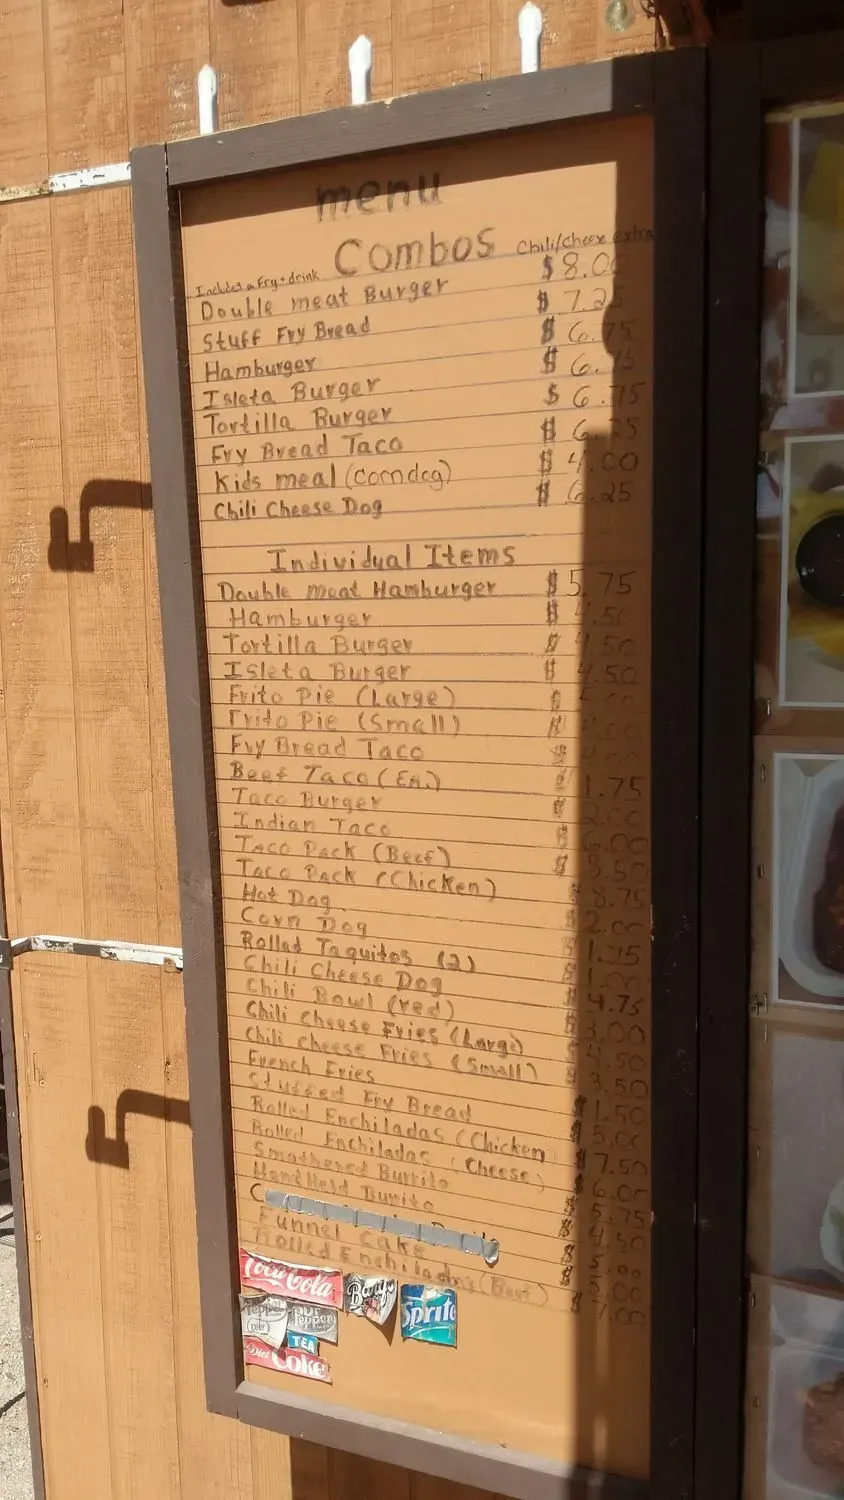 menu
Combos Chili/Cheese extra
Includes a Fry + drink
Double meat Burger $8.00
Stuff Fry Bread $7.25
Hamburger $6.75
Isleta Burger $6.75
Tortilla Burger $6.75
Fry Bread Taco $6.25
Kids meal (corndog) $4.00
Chili Cheese Dog $6.25
Individual Items
Double meat Hamburger $5.75
Hamburger $4.50
Tortilla Burger $4.50
Isleta Burger $4.50
Frito Pie (Large) $
Frito Pie (Small) $
Fry Bread Taco $
Beef Taco (EA.) $1.75
Taco Burger $2.00
Indian Taco $6.00
Taco Pack (Beef) $8.50
Taco Pack (Chicken) $8.75
Hot Dog $2.00
Corn Dog $1.75
Rolled Taquitos (2) $1.00
Chili Cheese Dog $4.75
Chili Bowl (red) $3.00
Chili Cheese Fries (Large) $4.50
Chili Cheese Fries (Small) $3.50
French Fries $1.50
Stuffed Fry Bread $5.00
Rolled Enchiladas (Chicken $7.50
Rolled Enchiladas (Cheese) $6.00
Smothered Burrito $5.75
HandHeld Burito $4.50
C $5.00
Funnel Cake $5.00
Rolled Enchiladas (Beef) $7.00
Coca-Cola
Barq's
Sprite
Dr Pepper
diet
Dr Pepper
TEA
Diet Coke